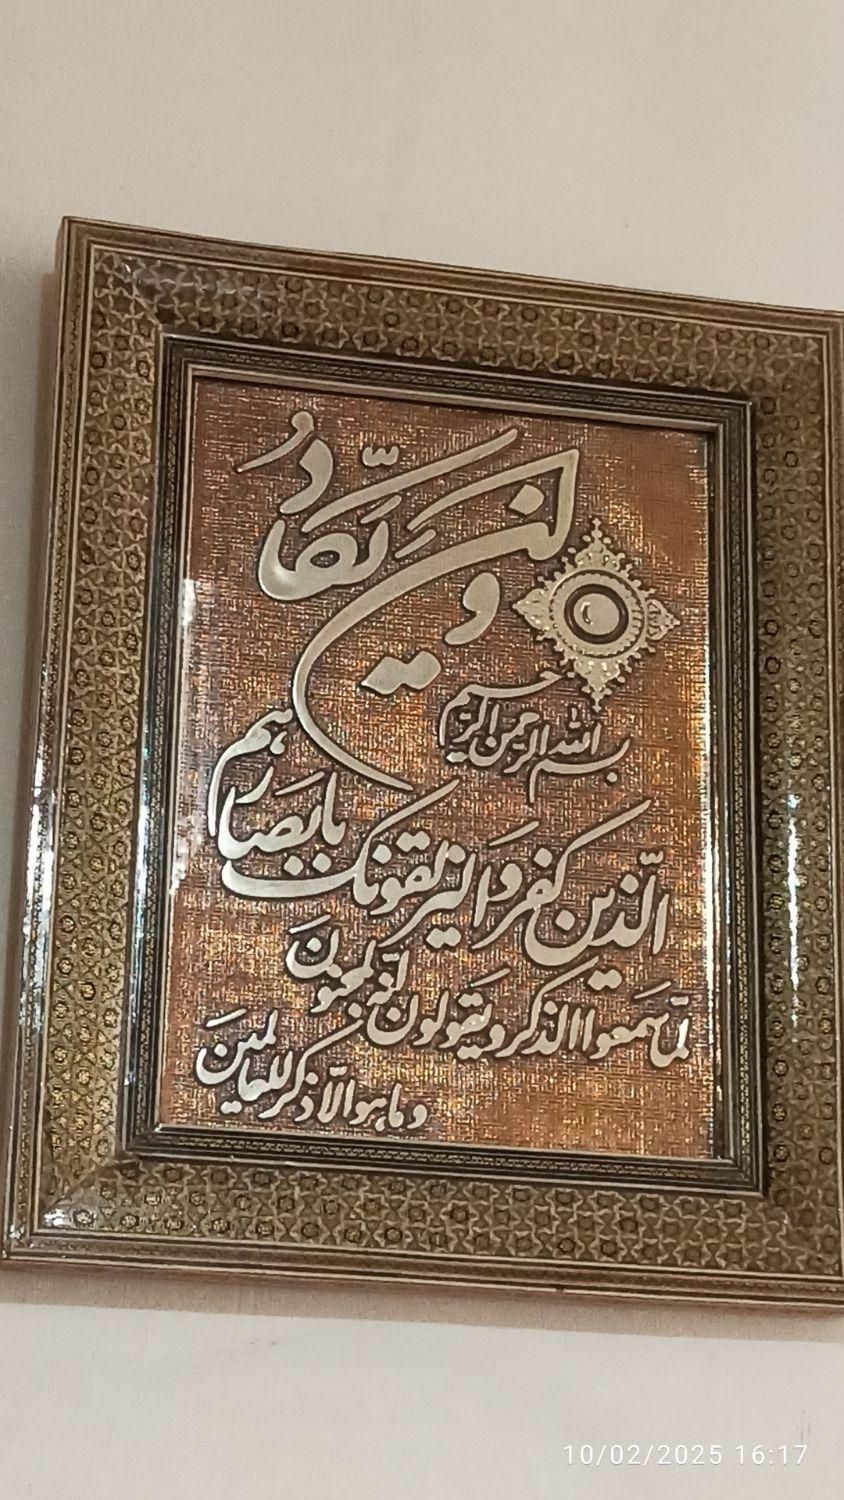 بسم الله الرحمن الرحیم
وان یکاد
الّذین کفروا لیزلقونک بابصارهم
لمّا سمعوا الذکر ویقولون انّه لمجنون
وما هو الّا ذکر للعالمین
10/02/2025 16:17